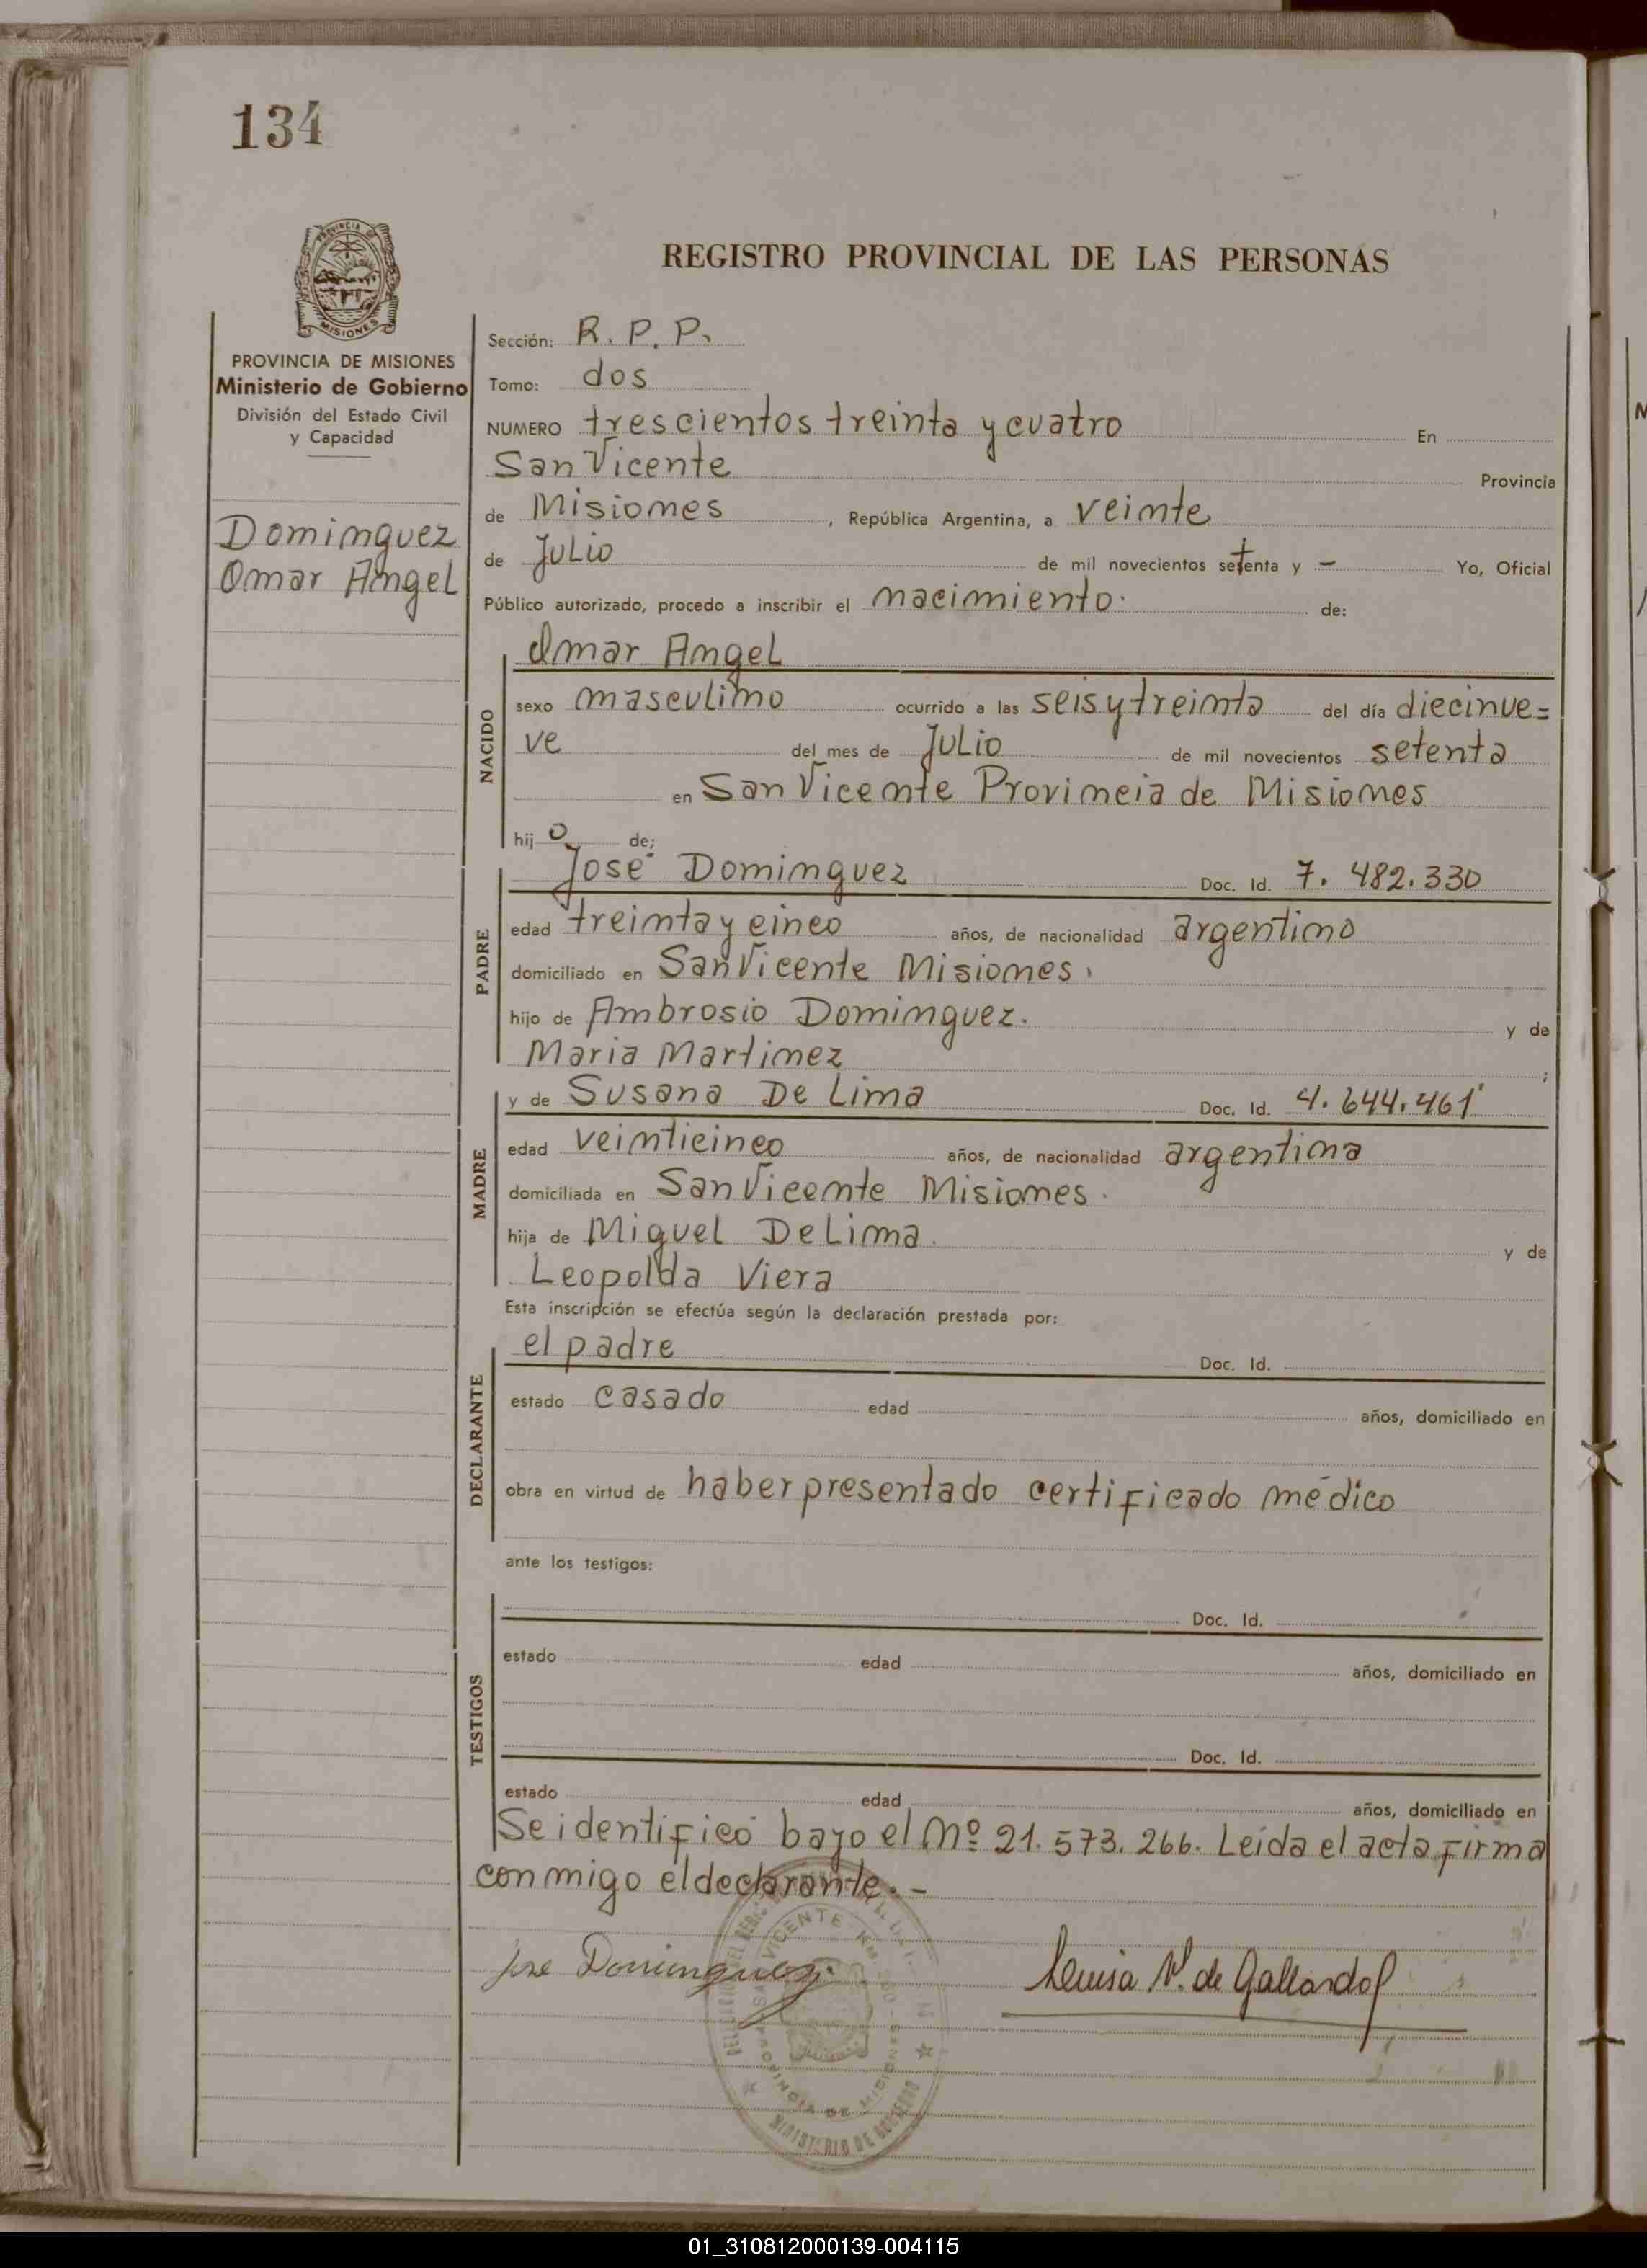 134
PROVINCIA DE
MISIONES
REGISTRO PROVINCIAL DE LAS PERSONAS
PROVINCIA DE MISIONES
Ministerio de Gobierno
División del Estado Civil
y Capacidad
Dominguez
Omar Angel
Sección: R. P. P.
Tomo: dos
NUMERO trescientos treinta y cuatro En
San Vicente Provincia
de Misiones, República Argentina, a veinte
de Julio de mil novecientos setenta y - Yo, Oficial
Público autorizado, procedo a inscribir el nacimiento de:
NACIDO
Omar Angel
sexo masculino ocurrido a las seis y treinta del día diecinue=
ve del mes de Julio de mil novecientos setenta
en San Vicente Provincia de Misiones
hijo de:
PADRE
José Dominguez Doc. Id. 7.482.330
edad treinta y cinco años, de nacionalidad argentino
domiciliado en San Vicente Misiones.
hijo de Ambrosio Dominguez. y de
Maria Martinez ;
MADRE
y de Susana De Lima Doc. Id. 4.644.461
edad veinticinco años, de nacionalidad argentina
domiciliada en San Vicente Misiones.
hija de Miguel De Lima. y de
Leopolda Viera
Esta inscripción se efectúa según la declaración prestada por:
DECLARANTE
el padre Doc. Id.
estado casado edad años, domiciliado en
obra en virtud de haber presentado certificado médico
ante los testigos:
TESTIGOS
Doc. Id.
estado edad años, domiciliado en
Doc. Id.
estado edad años, domiciliado en
Se identificó bayo el Nº 21.573.266. Leída el acta firma
conmigo el declarante.-
José Dominguez
Luisa V. de Gallardo
SAN VICENTE
PROVINCIA DE MISIONES
MINISTERIO DE GOBIERNO
01_310812000139-004115